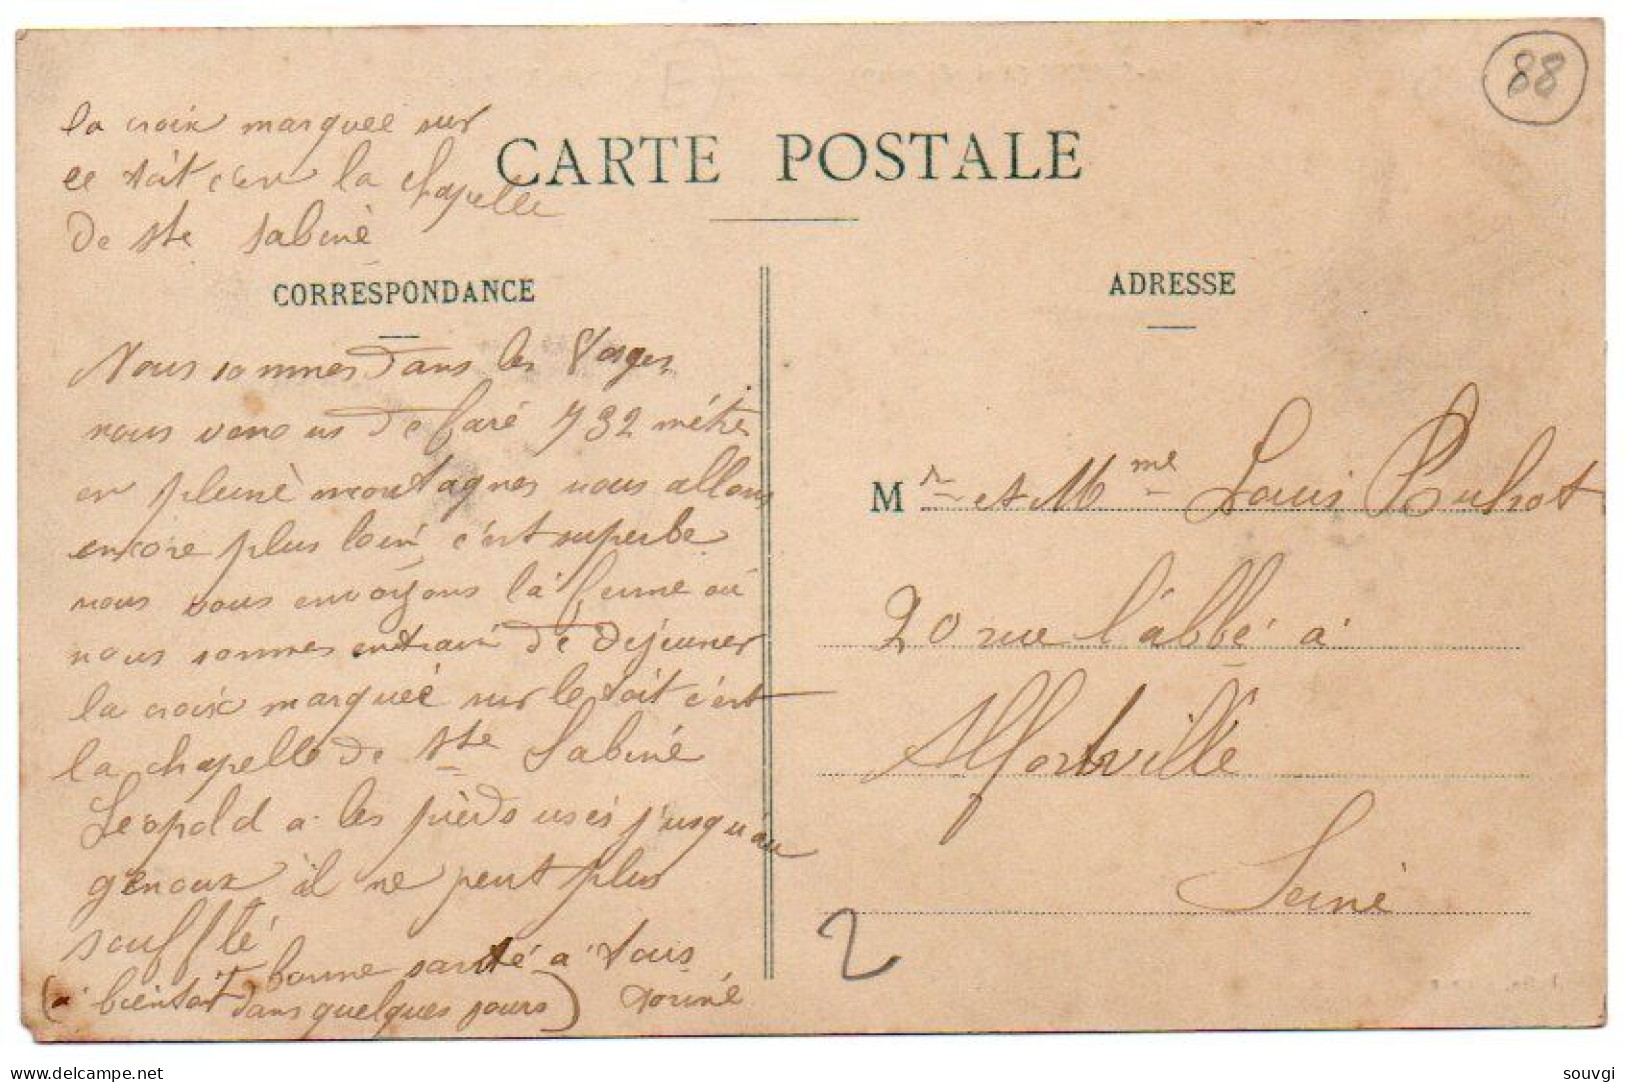 88
la croix marquee sur
ce toit c'est la chapelle
de Ste Sabine
CARTE POSTALE
CORRESPONDANCE
Nous sommes dans les Vosges
nous venons de faré 732 métres
en pleine montagnes nous allons
encore plus loin c'est superbe
nous vous envoyons la ferme où
nous sommes entrain de dejeuner
la croix marqueé sur le toit c'est
la chapelle de Ste Sabine
Leopold a les pieds usés jusqu'au
genoux il ne peut plus
soufflé
bonne santé a tous
(a bientôt dans quelques jours)
ADRESSE
Mr et Mme Louis Buhot
20 rue l'abbé à
Alfortville
Seine
2
souvgi